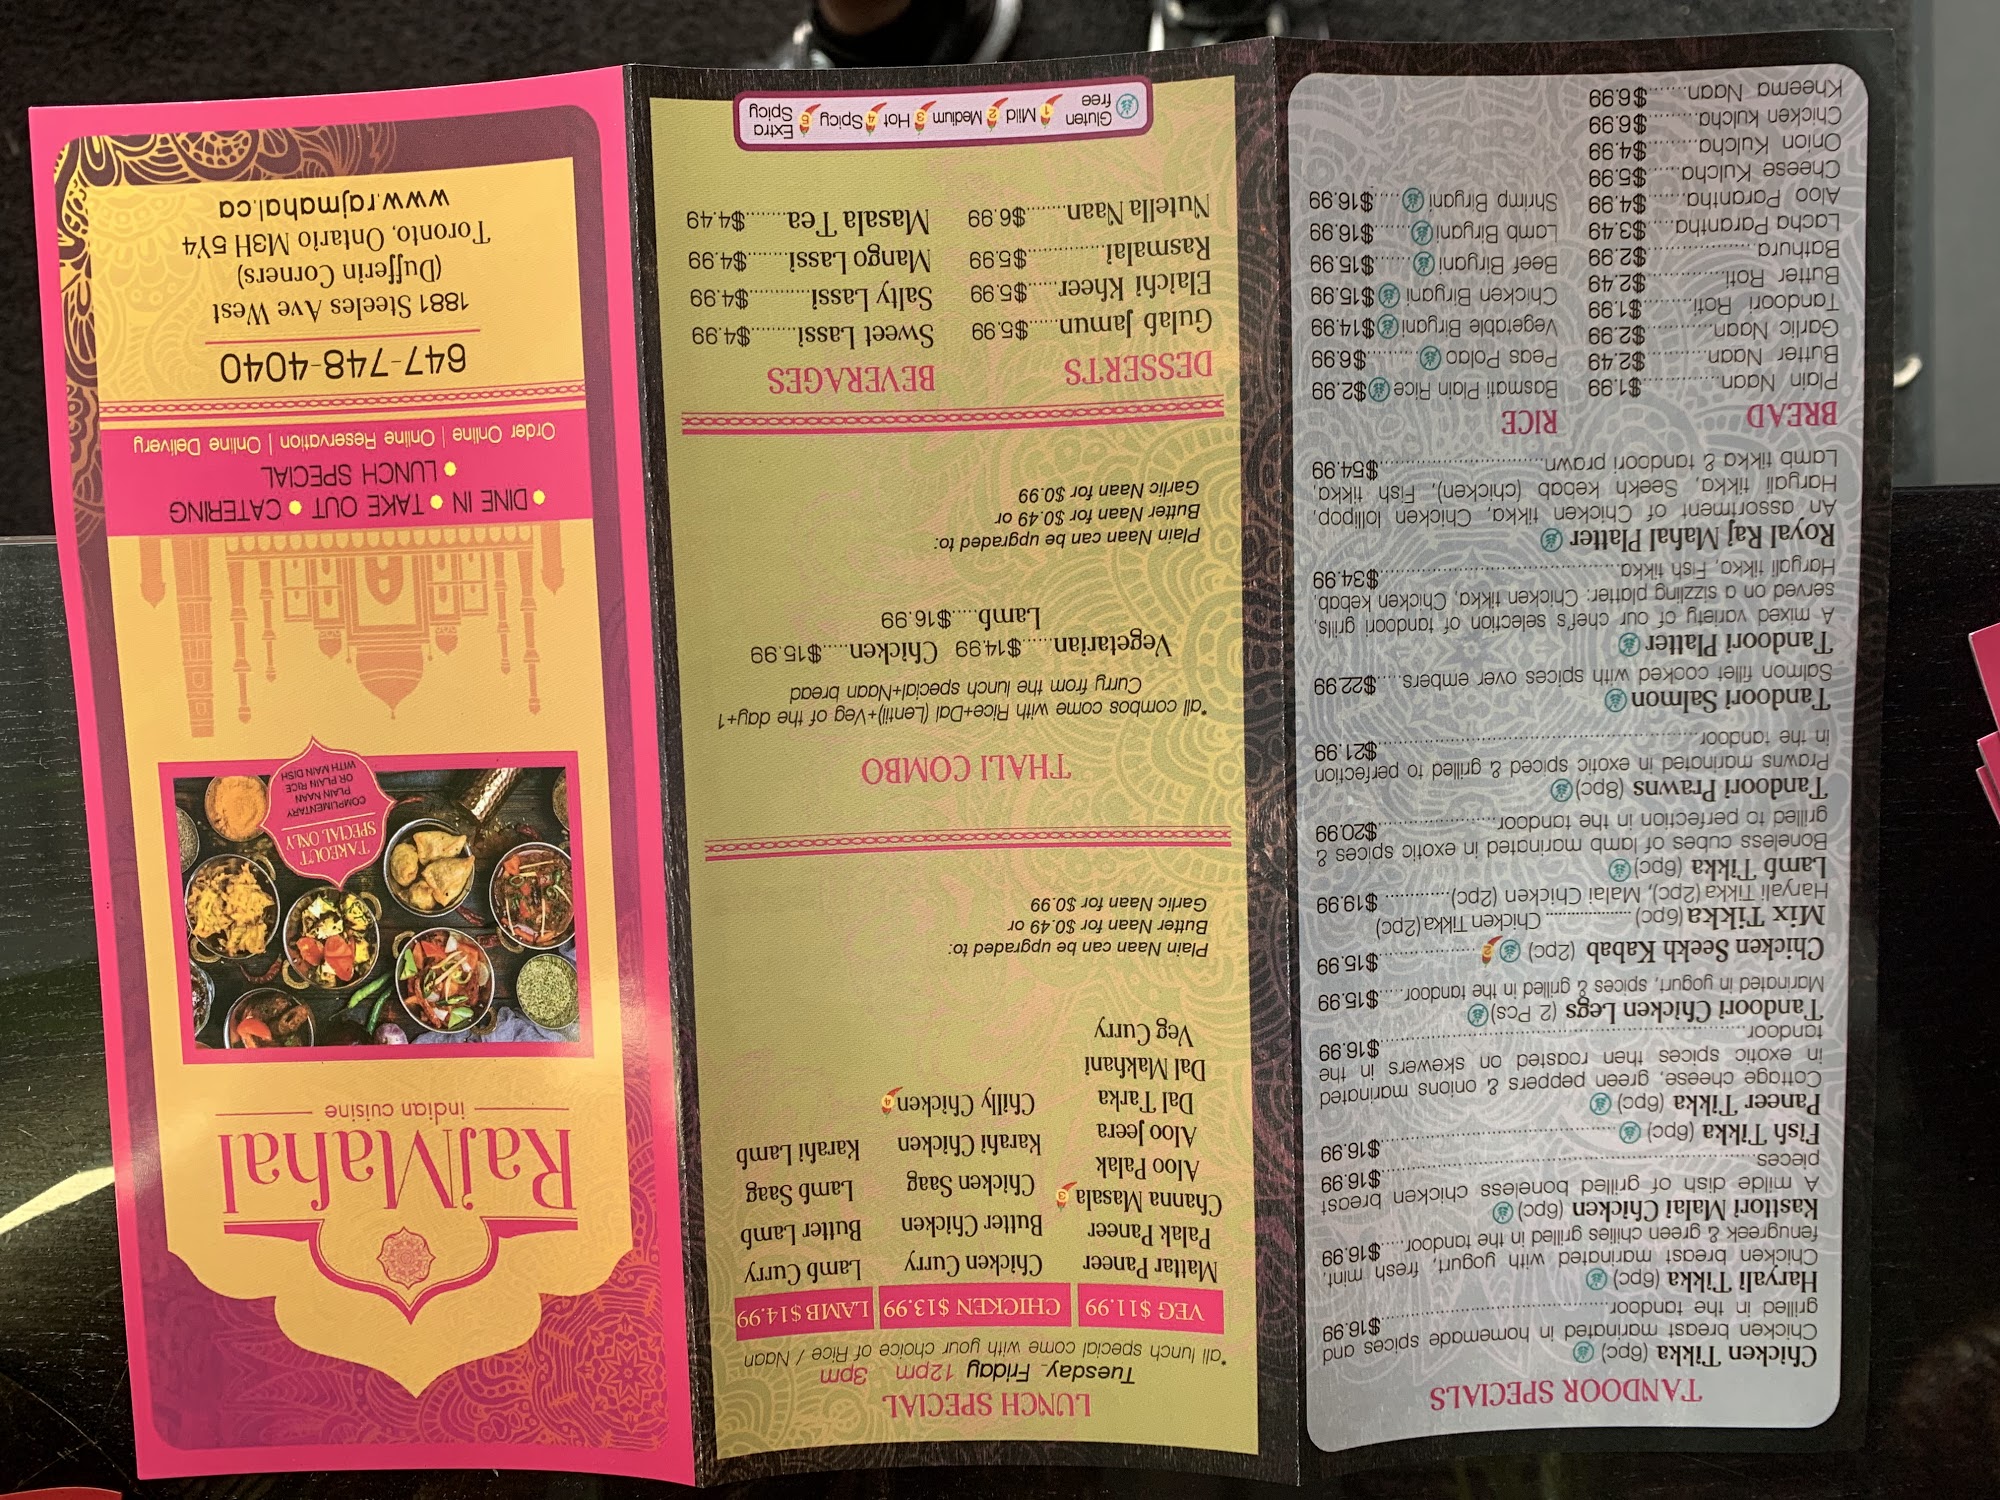 TANDOOR SPECIALS
Chicken Tikka (6pc)
Chicken breast marinated in homemade spices and
grilled in the tandoor....................$16.99
Haryali Tikka (6pc)
Chicken breast marinated with yogurt, fresh mint,
fenugreek & green chilies grilled in the tandoor.....$16.99
Kasttori Malai Chicken (6pc)
A milde dish of grilled boneless chicken breast
pieces....................$16.99
Fish Tikka (6pc)....................$16.99
Paneer Tikka (6pc)
Cottage cheese, green peppers & onions marinated
in exotic spices then roasted on skewers in the
tandoor....................$16.99
Tandoori Chicken Legs (2 Pcs)
Marinated in yogurt, spices & grilled in the tandoor.....$15.99
Chicken Seekh Kabab (2pc) 2 ....................$15.99
Mix Tikka (6pc)....................Chicken Tikka (2pc)
Haryali Tikka (2pc), Malai Chicken (2pc)............$19.99
Lamb Tikka (6pc)
Boneless cubes of lamb marinated in exotic spices &
grilled to perfection in the tandoor....................$20.99
Tandoori Prawns (8pc)
Prawns marinated in exotic spiced & grilled to perfection
in the tandoor....................$21.99
Tandoori Salmon
Salmon fillet cooked with spices over embers.....$22.99
Tandoori Platter
A mixed variety of our chef's selection of tandoori grills,
served on a sizzling platter: Chicken tikka, Chicken kebab,
Haryali tikka, Fish tikka....................$34.99
Royal Raj Mahal Platter
An assortment of Chicken tikka, Chicken lollipop,
Haryali tikka, Seekh kebab (chicken), Fish tikka,
Lamb tikka & tandoori prawn....................$54.99
BREAD
Plain Naan............$1.99
Butter Naan............$2.49
Garlic Naan............$2.99
Tandoori Roti............$1.99
Butter Roti............$2.49
Bathura............$2.99
Lacha Parantha............$3.49
Aloo Parantha............$4.99
Cheese Kulcha............$5.99
Onion Kulcha............$4.99
Chicken Kulcha............$6.99
Kheema Naan............$6.99
RICE
Basmati Plain Rice $2.99
Peas Polao ............$6.99
Vegetable Biryani $14.99
Chicken Biryani $15.99
Beef Biryani .....$15.99
Lamb Biryani .....$16.99
Shrimp Biryani .....$16.99
LUNCH SPECIAL
Tuesday_Friday 12pm 3pm
*all lunch special come with your choice of Rice / Naan
VEG $11.99
Mattar Paneer
Palak Paneer
Channa Masala 3
Aloo Palak
Aloo Jeera
Dal Tarka
Dal Makhani
Veg Curry
CHICKEN $13.99
Chicken Curry
Butter Chicken
Chicken Saag
Karahi Chicken
Chilly Chicken 4
LAMB $14.99
Lamb Curry
Butter Lamb
Lamb Saag
Karahi Lamb
Plain Naan can be upgraded to:
Butter Naan for $0.49 or
Garlic Naan for $0.99
THALI COMBO
*all combos come with Rice+Dal (Lentil)+Veg of the day+1
Curry from the lunch special+Naan bread
Vegetarian.......$14.99 Chicken.....$15.99
Lamb.....$16.99
Plain Naan can be upgraded to:
Butter Naan for $0.49 or
Garlic Naan for $0.99
DESSERTS
Gulab Jamun......$5.99
Elaichi Kheer......$5.99
Rasmalai............$5.99
Nutella Naan.......$6.99
BEVERAGES
Sweet Lassi.........$4.99
Salty Lassi............$4.99
Mango Lassi........$4.99
Masala Tea........$4.49
Gluten free 1 Mild 2 Medium 3 Hot 4 Spicy 5 Extra Spicy
RajMahal
indian cuisine
TAKEOUT
SPECIAL ONLY
COMPLIMENTARY
PLAIN NAAN
OR PLAIN RICE
WITH MAIN DISH
• DINE IN • TAKE OUT • CATERING
• LUNCH SPECIAL
Order Online | Online Reservation | Online Delivery
647-748-4040
1881 Steeles Ave West
(Dufferin Corners)
Toronto, Ontario M3H 5Y4
www.rajmahal.ca